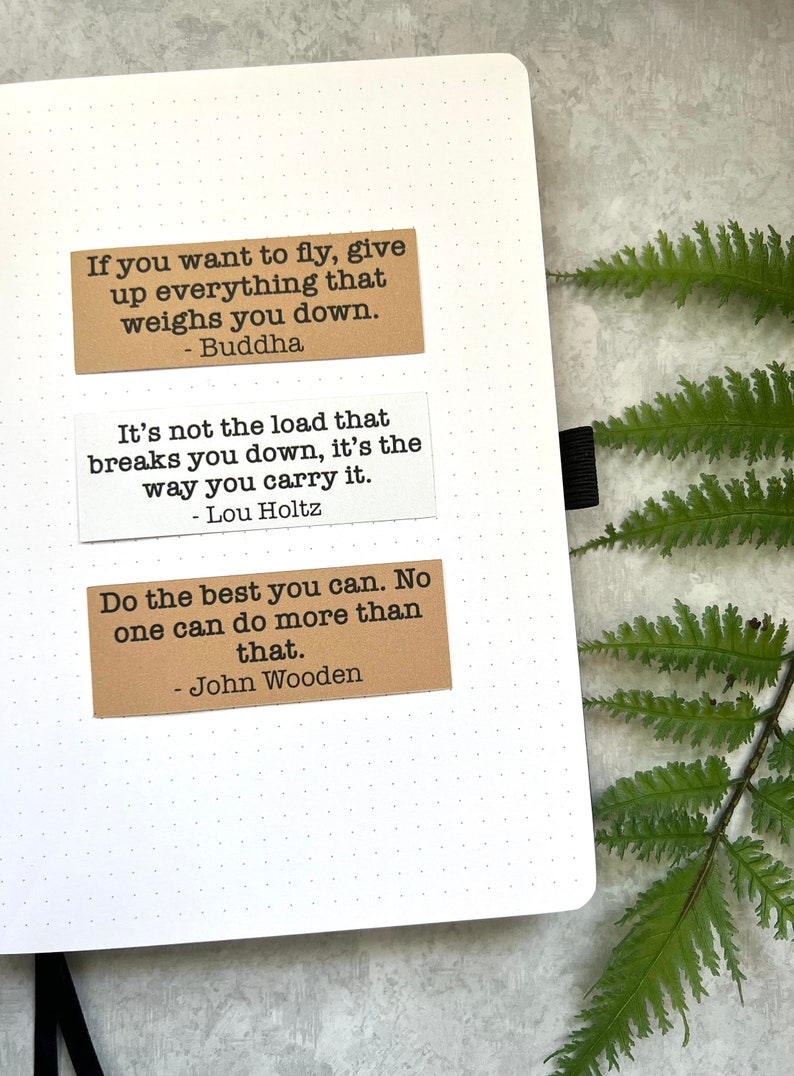 If you want to fly, give
up everything that
weighs you down.
- Buddha
It's not the load that
breaks you down, it's the
way you carry it.
- Lou Holtz
Do the best you can. No
one can do more than
that.
- John Wooden